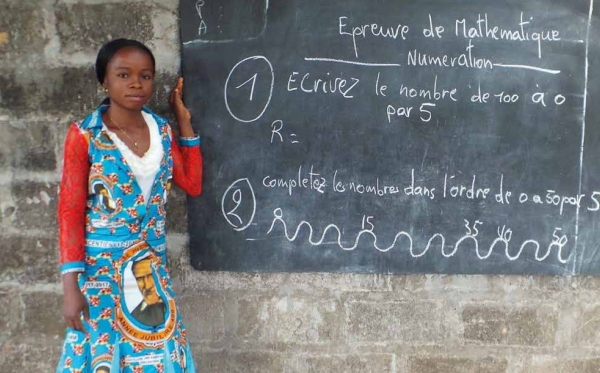 P
A:
Epreuve de Mathematique
Numeration
1 Ecrivez le nombre de 100 à 0
par 5
R=
2 completez les nombres dans l'ordre de 0 a 50 par 5
0 15 35 40 50
ANNÉE JUBILAIRE